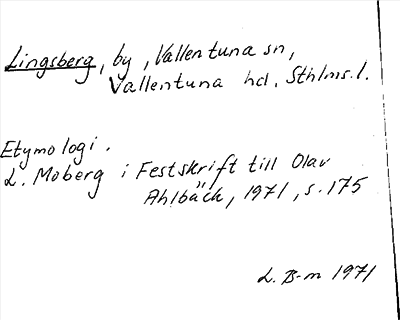 Lingsberg, by, Vallentuna sn,
Vallentuna hd. Sthlms. l.
Etymologi.
L. Moberg i Festskrift till Olav
Ahlbäck, 1971, s. 175
L. B-m 1971